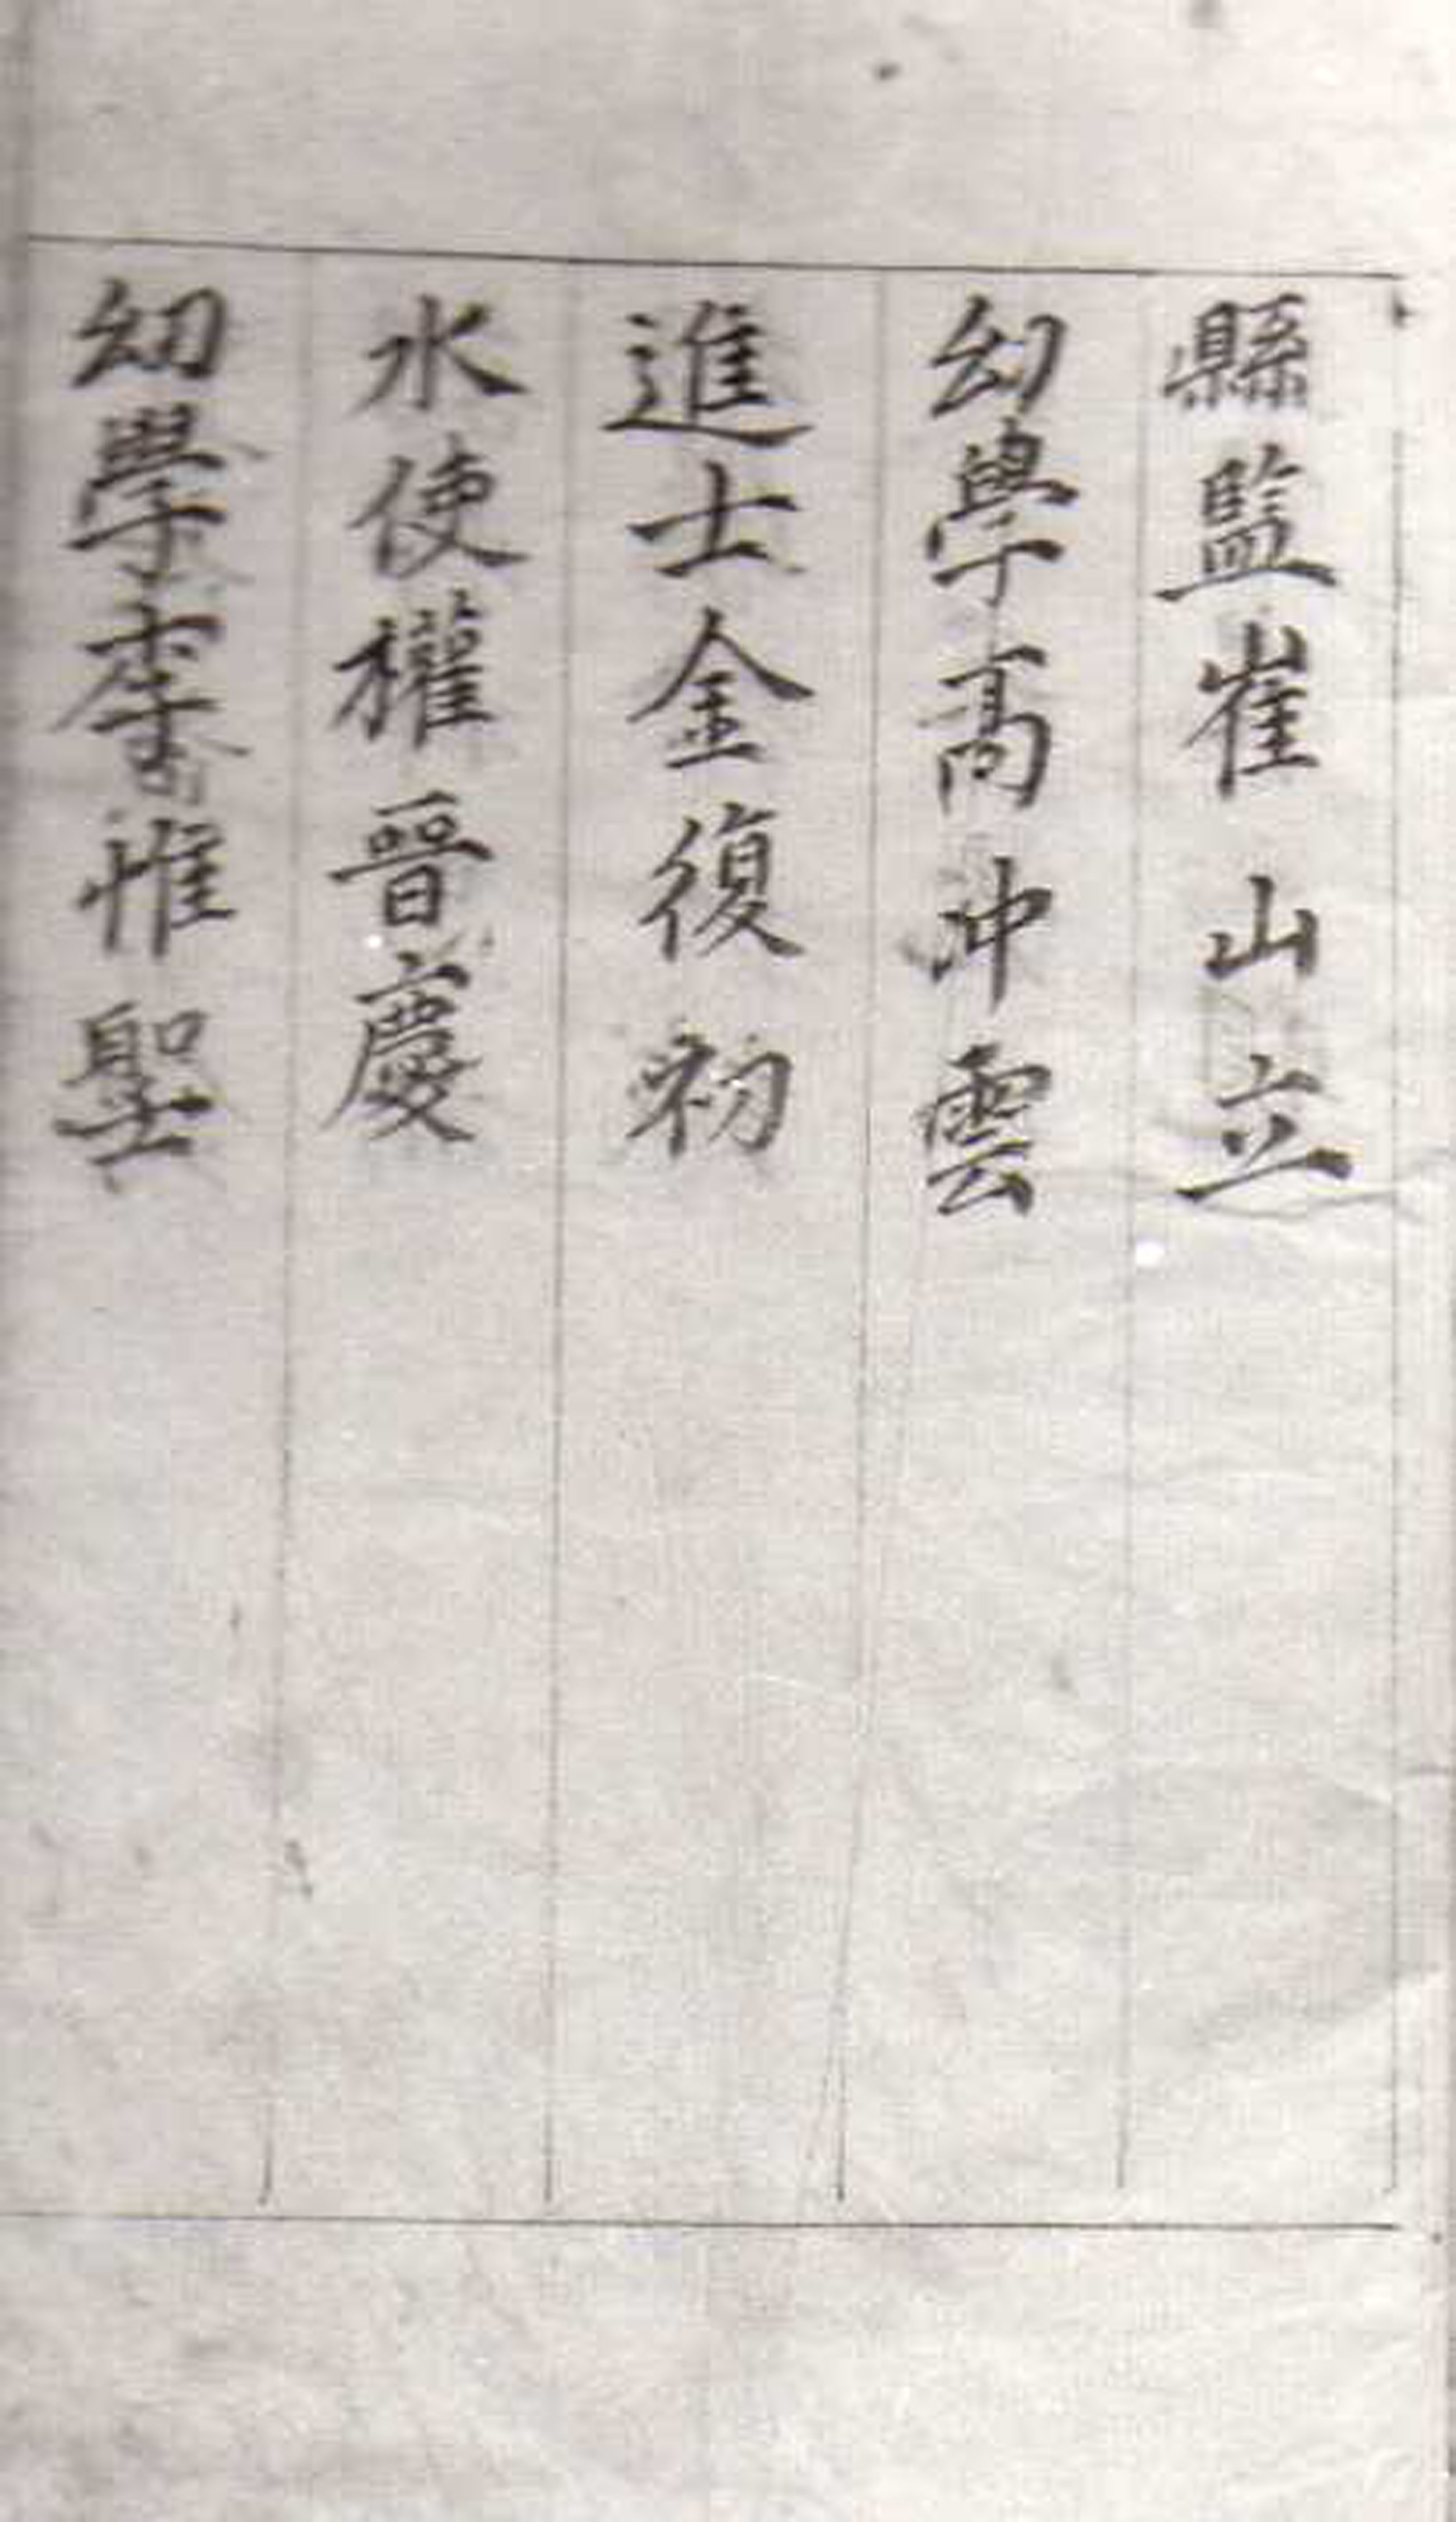 縣監崔山立
幼學高冲雲
進士金復初
水使權晉慶
幼學惟聖